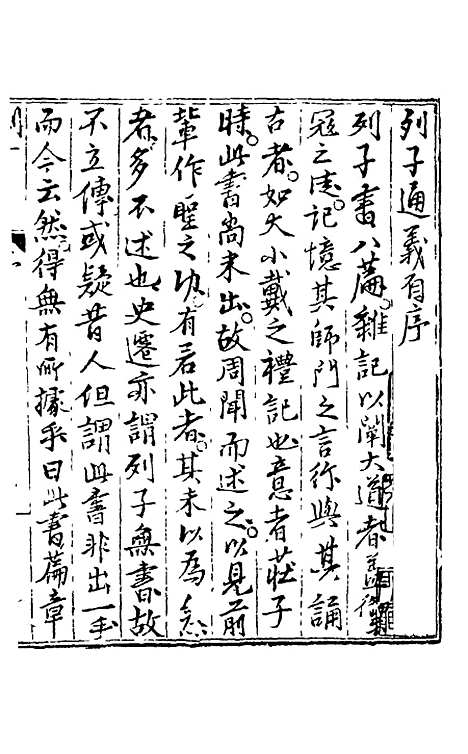 列子通義有序
列子書八篇雜記以闡大道者蓋後
冠之德記憶其師門之言行與其誦
古者如大小戴之禮記也意者莊子
時此書尚未出故周聞而述之以見前
輩作聖之功有若此者其未以為
者多不述也史遷亦謂列子無書故
不立傳或疑昔人但謂此書非出一手
而今云然得無有所據乎曰此書篇章